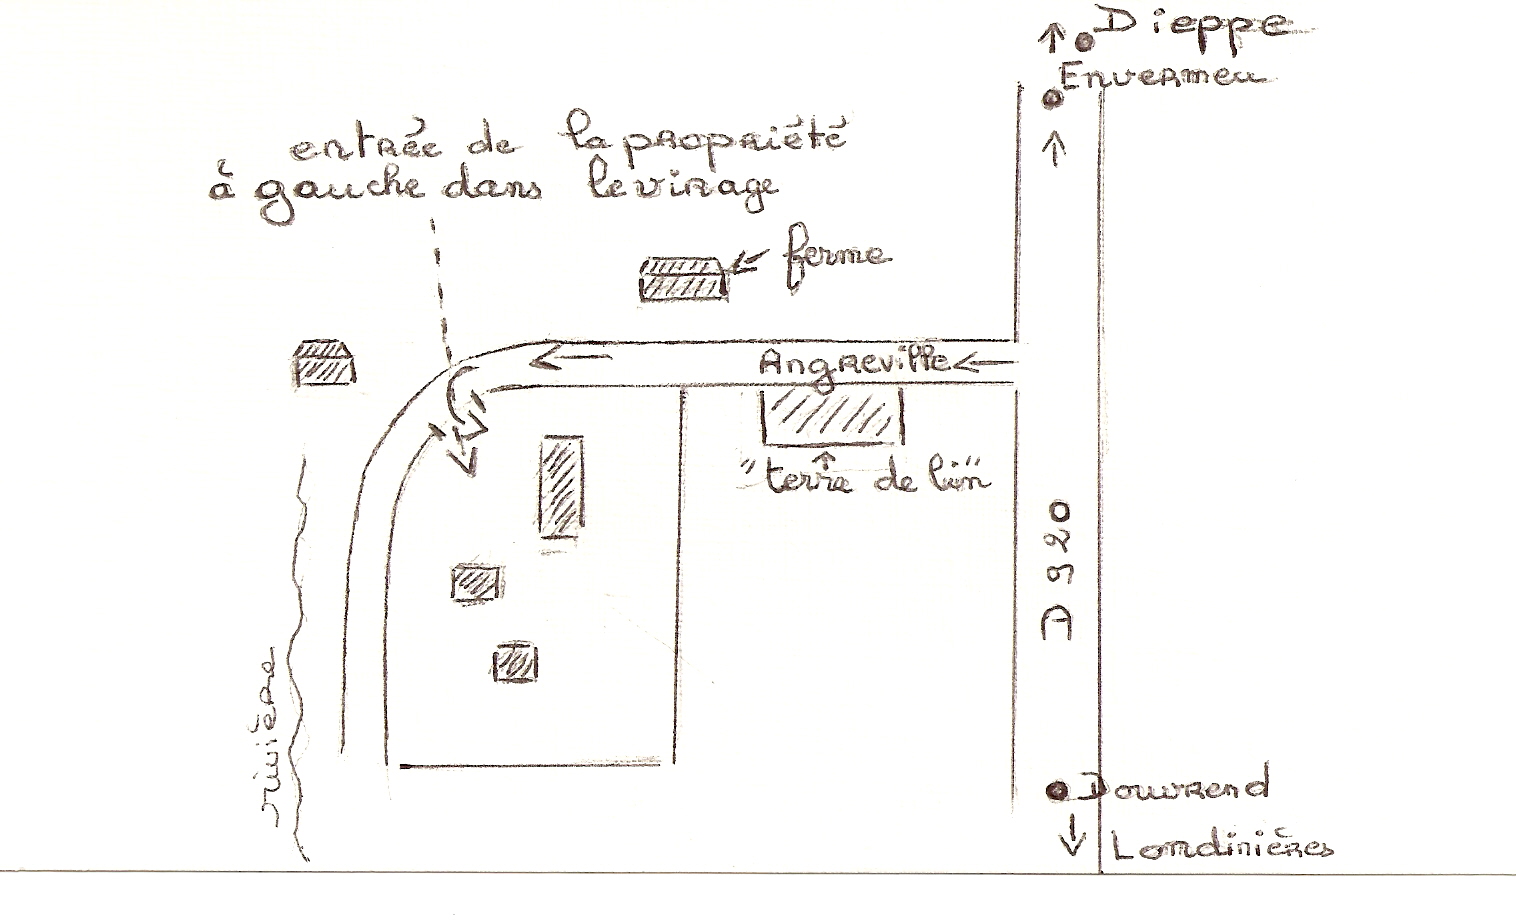 Dieppe
Envermeu
entrée de la propriété
à gauche dans le virage
ferme
Angreville
"terre de lin"
D 920
rivière
Douvrend
Londinières